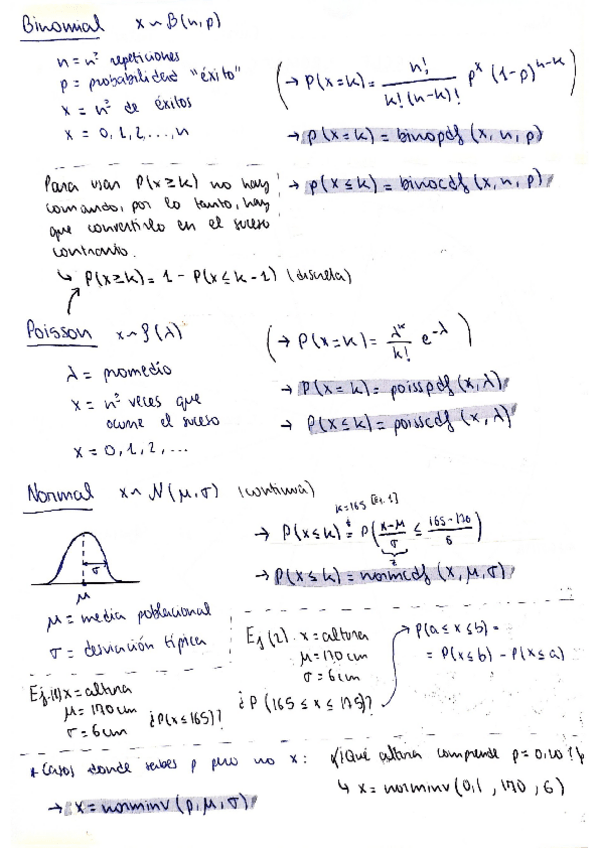 Binomial x ~ β(n,p)
n = nº repeticiones
p = probabilidad "éxito"
x = nº de éxitos
x = 0, 1, 2, ..., n
(→ P(x=k) = n! / k!(n-k)! p^x (1-p)^(n-k))
→ p(x=k) = binopdf (x, n, p)
→ p(x≤k) = binocdf (x, n, p)
Para usar P(x≥k) no hay
comando, por lo tanto, hay
que convertirlo en el suceso
contrario.
↳ P(x≥k) = 1 - P(x≤k-1) (discreta)
Poisson x ~ P(λ)
λ = promedio
x = nº veces que
ocurre el suceso
x = 0, 1, 2, ...
(→ P(x=k) = λ^k / k! e^-λ)
→ P(x=k) = poisspdf (x, λ)
→ P(x≤k) = poisscdf (x, λ)
Normal x ~ N(μ, σ) (continua)
k=165 [Ej. 1]
→ P(x≤k) = P( x-μ / σ ≤ 165-170 / 6 )
z
→ P(x≤k) = normcdf (x, μ, σ)
σ
μ
μ = media poblacional
σ = desviación típica
Ej. (1) x = altura
μ = 170 cm
σ = 6 cm ¿P(x≤165)?
Ej (2). x = altura
μ = 170 cm
σ = 6 cm
¿P (165 ≤ x ≤ 175)?
→ P(a ≤ x ≤ b) =
= P(x≤b) - P(x≤a)
* Casos donde sabes p pero no x:
→ x = norminv (p, μ, σ)
¿Qué altura comprende p = 0,10?
↳ x = norminv (0,1 , 170 , 6)